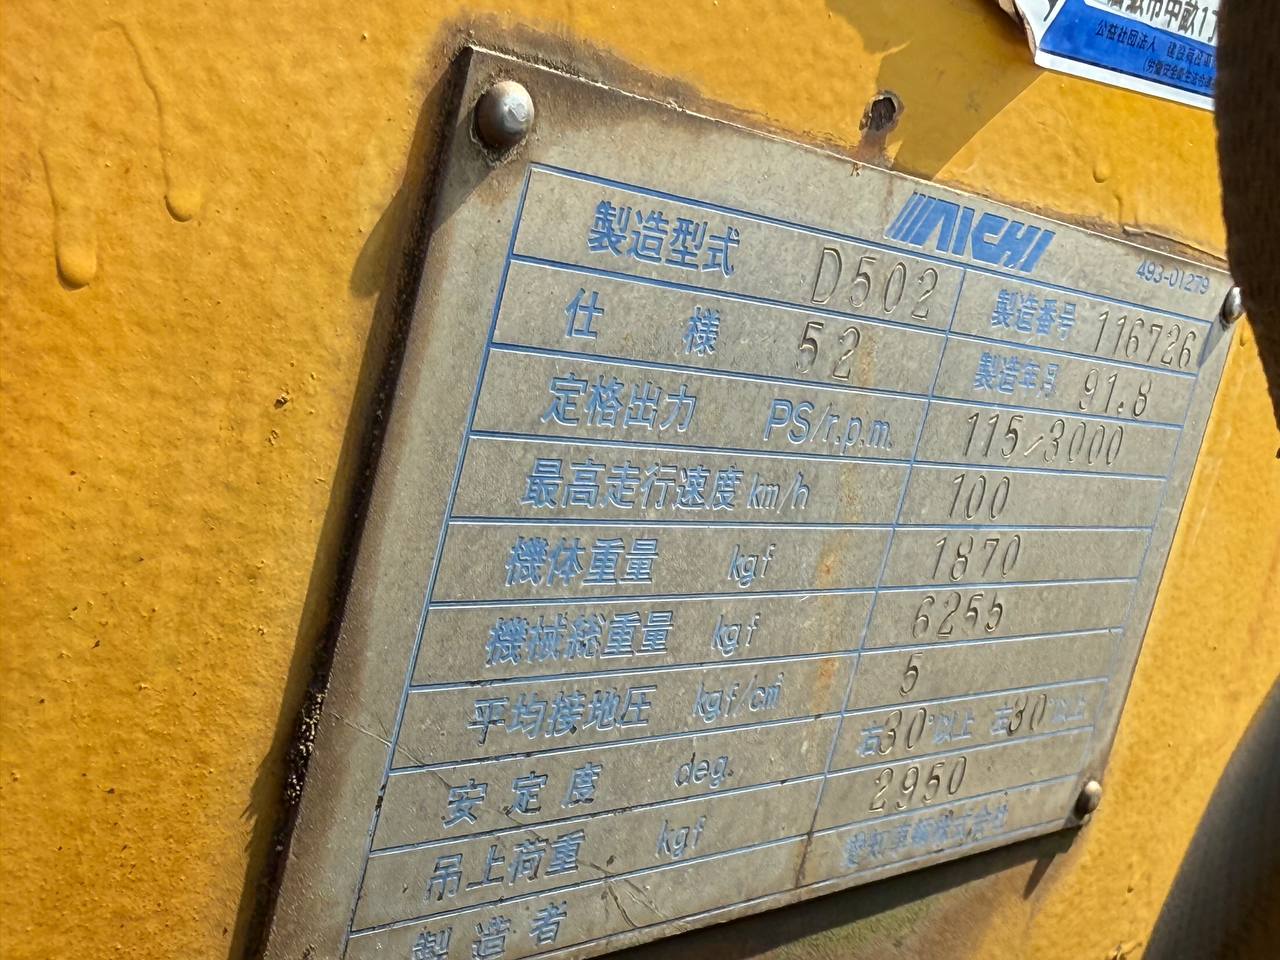 公益社団法人 建設荷役
AICHI
493-01279
製造型式 D502 製造番号 116726
仕様 52 製造年月 91.8
定格出力 PS/r.p.m. 115/3000
最高走行速度 km/h 100
機体重量 kgf 1870
機械総重量 kgf 6255
平均接地圧 kgf/cm² 5
安定度 deg. 右30°以上 左30°以上
吊上荷重 kgf 2950
製造者 愛知車輌株式会社